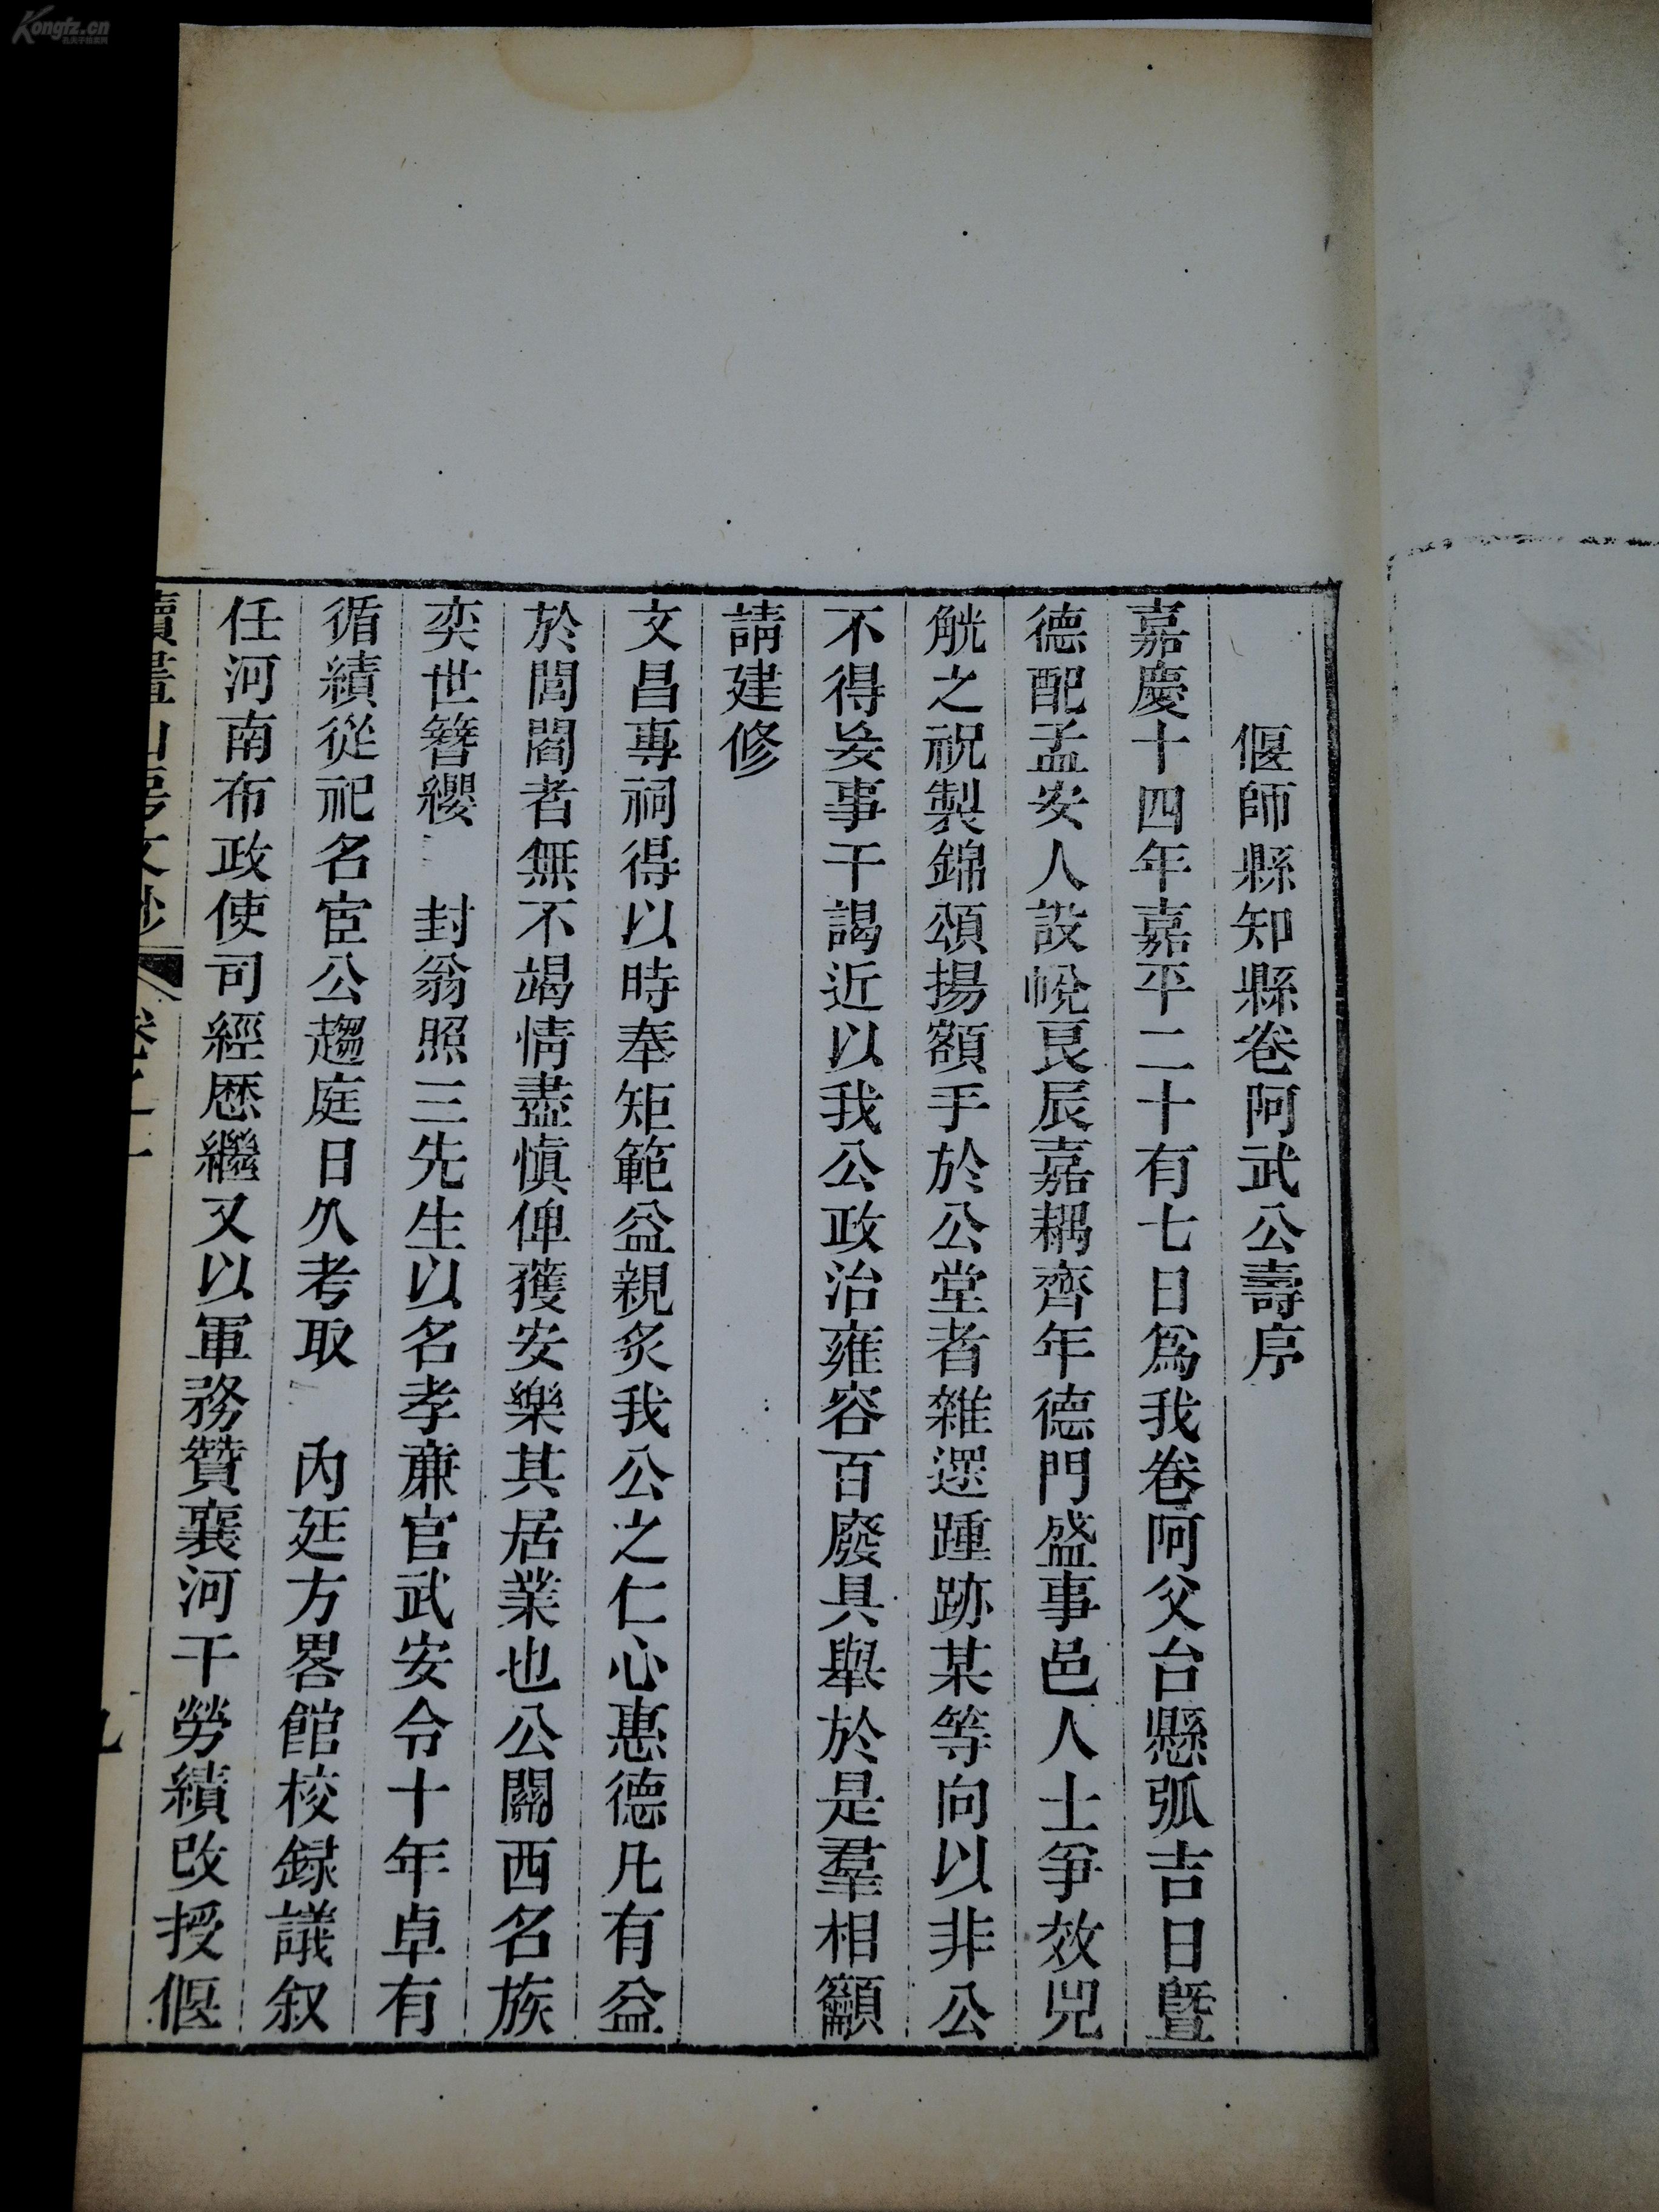 偃師縣知縣卷阿武公壽序
嘉慶十四年嘉平二十有七日爲我卷阿父台懸弧吉日曁
德配孟安人設帨良辰嘉耦齊年德門盛事邑人士爭效兕
觥之祝製錦頌揚額手於公堂者雜遝踵跡某等向以非公
不得妄事干謁近以我公政治雍容百廢具舉於是羣相籲
請建修
文昌專祠得以時奉矩範益親炙我公之仁心惠德凡有益
於閭閻者無不竭情盡愼俾獲安樂其居業也公關西名族
奕世簪纓 封翁照三先生以名孝亷官武安令十年卓有
循績從祀名宦公趨庭日久考取 內廷方畧館校録議叙
任河南布政使司經歷繼又以軍務贊襄河干勞績改授偃
山房文鈔
Kongfz.cn